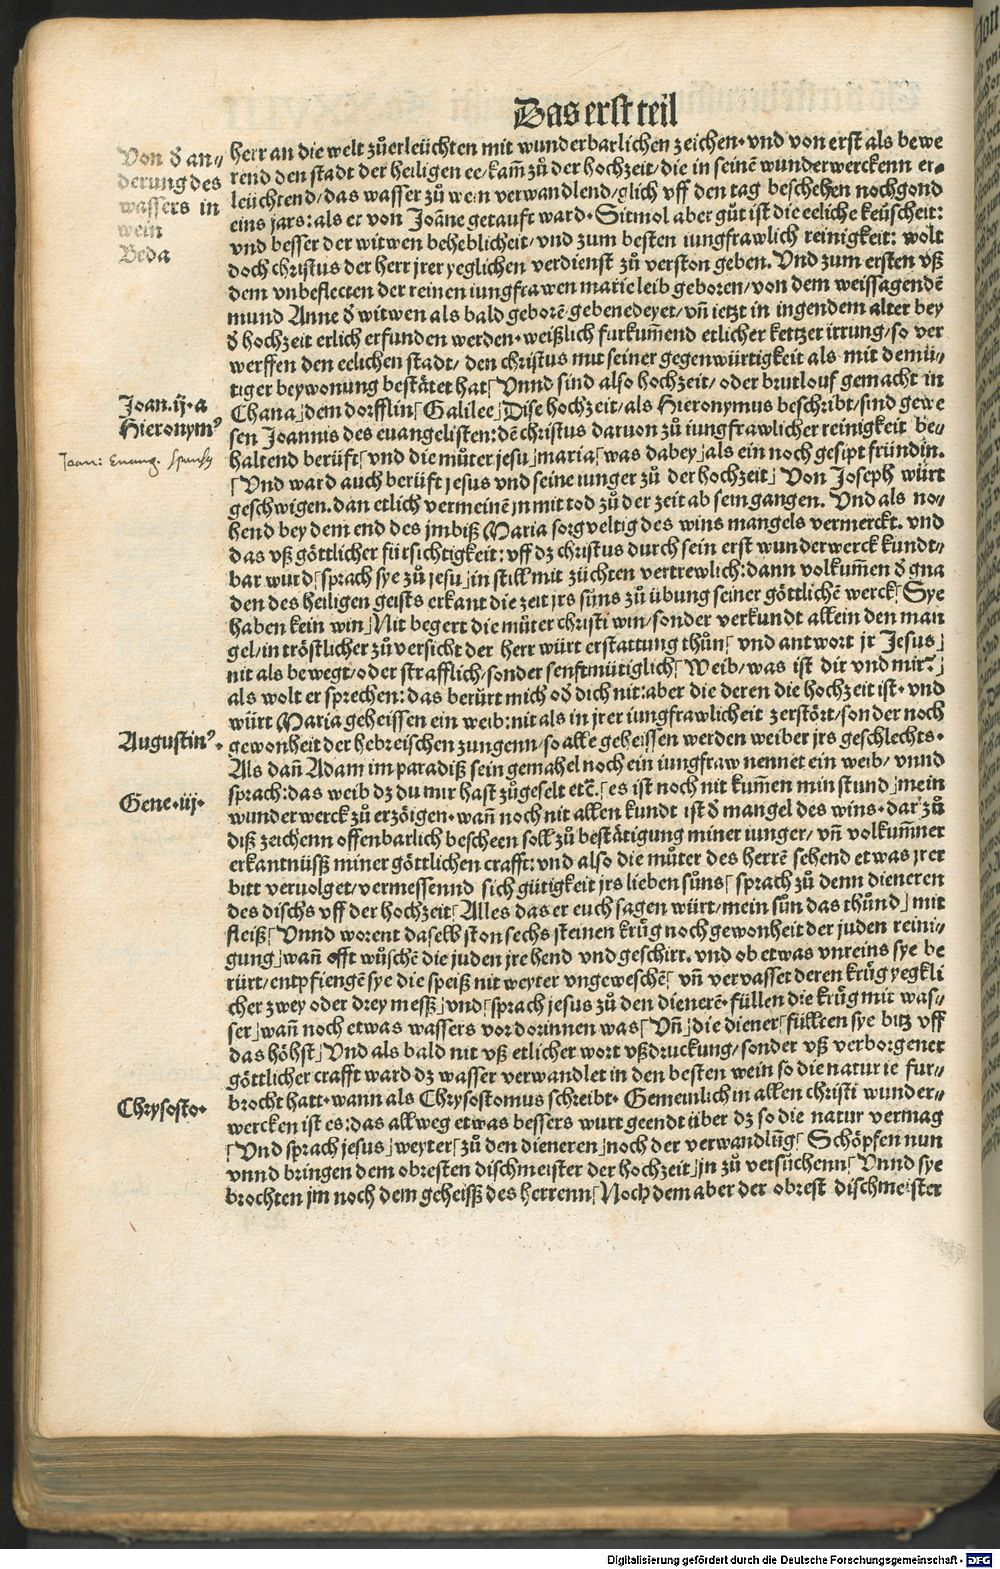 Das erst teil
Von ð an⸗
derung des
wassers in
wein
Beda
herr an die welt zůerleüchten mit wunderbarlichen zeichen· vnd von erst als bewe
rend den stadt der heiligen ee/ kam̃ zů der hochzeit/ die in seinē wunderwerckenn er⸗
leüchtend/ das wasser zů wein verwandlend/ glich vff den tag beschehen nochgond
eins jars: als er von Joãne getauft ward· Sitmol aber gůt ist die eeliche keüscheit:
vnd besser der witwen beheblicheit/ vnd zum besten iungfrawlich reinigkeit: wolt
doch christus der herr jrer yeglichen verdienst zů verston geben. Vnd zum ersten vß
dem vnbeflecten der reinen iungfrawen marie leib geboren/ von dem weissagendē
mund Anne ð witwen als bald geborē gebenedeyet/ vñ ietzt in ingendem alter bey
ð hochzeit erlich erfunden werden· weißlich furkum̃end etlicher kettzer irrung/ so ver
werffen den eelichen stadt/ den christus mit seiner gegenwürtigkeit als mit demü⸗
tiger beywonung bestätet hat⌈ Vnnd sind also hochzeit/ oder brutlouf gemacht in
Joan.ij·a
Hieronymꝰ
Chana⌋ dem dorfflin⌈ Galilee⌋ Dise hochzeit/ als Hieronymus beschribt/ sind gewe
sen Joannis des euangelisten: dē christus daruon zů iungfrawlicher reinigkeit be⸗
Joan: Euang.
haltend berüft⌈ vnd die můter jesu⌋ maria⌈ was dabey⌋ als ein noch gesipt fründin.
⌈Vnd ward auch berüft jesus vnd seine iunger zů der hochzeit⌋ Von Joseph würt
geschwigen. dan etlich vermeinē jn mit tod zů der zeit ab sein gangen. Vnd als no⸗
hend bey dem end des jmbiß Maria sorgveltig des wins mangels vermerckt. vnd
das vß göttlicher fürsichtigkeit: vff dz christus durch sein erst wunderwerck kundt⸗
bar wurd⌈ sprach sye zů jesu⌋ in still mit züchten vertrewlich: dann volkum̃en ð gna
den des heiligen geists erkant die zeit jrs süns zů übung seiner göttlichē werck⌈ Sye
haben kein win⌋ Nit begert die můter christi win/ sonder verkundt allein den man
gel/ in tröstlicher zůversicht der herr würt erstattung thůn⌈ vnd antwort jr Jesus⌋
nit als bewegt/ oder strafflich/ sonder senftmütiglich⌈ Weib/ was ist dir vnd mir?⌋
als wolt er sprechen: das berürt mich oð dich nit: aber die deren die hochzeit ist· vnd
würt Maria geheissen ein weib: nit als in jrer iungfrawlicheit zerstört/ sonder noch
Augustinꝰ·
gewonheit der hebreischen zungenn/ so alle geheissen werden weiber jrs geschlechts·
Als dañ Adam im paradiß sein gemahel noch ein iungfraw nennet ein weib/ vnnd
Gene·iij·
sprach: das weib dz du mir hast zůgeselt etc̃.⌈ es ist noch nit kum̃en min stund⌋ mein
wunderwerck zů erzöigen· wañ noch nit allen kundt ist ð mangel des wins· dar zů
diß zeichenn offenbarlich bescheen soll zů bestätigung miner iunger/ vñ volkum̃ner
erkantnüß miner göttlichen crafft: vnd also die můter des herrē sehend etwas jrer
bitt veruolget/ vermessennd sich gütigkeit jrs lieben süns⌈ sprach zů denn dieneren
des dischs vff der hochzeit⌈ Alles das er euch sagen würt/ mein sůn das thůnd⌋ mit
fleiß⌈ Vnnd worent daselb ston sechs steinen krüg noch gewonheit der juden reini⸗
gung⌋ wañ offt wůschē die juden jre hend vnd geschirr. vnd ob etwas vnreins sye be
rürt/ entpfiengē sye die speiß nit weyter vngeweschē⌈ vñ vervasset deren krüg yegkli
cher zwey oder drey meß⌋ vnd⌈ sprach jesus zů den dienerē· füllen die krüg mit was⸗
ser⌋ wañ noch etwas wassers vor dorinnen was⌈ Vñ⌋ die diener⌈ fülleten sye bitz vff
das höhst⌋ Vnd als bald nit vß etlicher wort vßdruckung/ sonder vß verborgener
göttlicher crafft ward dz wasser verwandlet in den besten wein so die natur ie fur⸗
Chrysosto·
brocht hatt· wann als Chrysostomus schreibt· Gemeinlich in allen christi wunder⸗
wercken ist es: das allweg etwas bessers wurt geendt über dz so die natur vermag
⌈Vnd sprach jesus⌋ weyter⌈ zů den dieneren⌋ noch der verwandlũg⌈ Schöpfen nun
vnnd bringen dem obresten dischmeister der hochzeit⌋ jn zů versüchenn⌈ Vnnd sye
brochten jm noch dem geheiß des herrenn⌈ Noch dem aber der obrest dischmeister
Digitalisierung gefördert durch die Deutsche Forschungsgemeinschaft - DFG